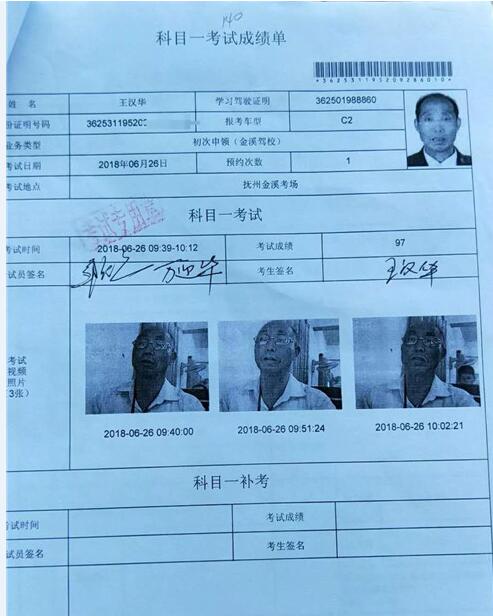 140
科目一考试成绩单
*362531195209286010*
姓 名 王汉华 学习驾驶证明 362501988860
份证明号码 36253119520 报考车型 C2
业务类型 初次申领（金溪驾校）
考试日期 2018年06月26日 预约次数 1
考试地点 抚州金溪考场
科目一考试
考试专用章
考试时间 2018-06-26 09:39-10:12 考试成绩 97
试员签名 考生签名 王汉华
考试
视频
照片
（3张）
2018-06-26 09:40:00 2018-06-26 09:51:24 2018-06-26 10:02:21
科目一补考
考试时间 考试成绩
试员签名 考生签名